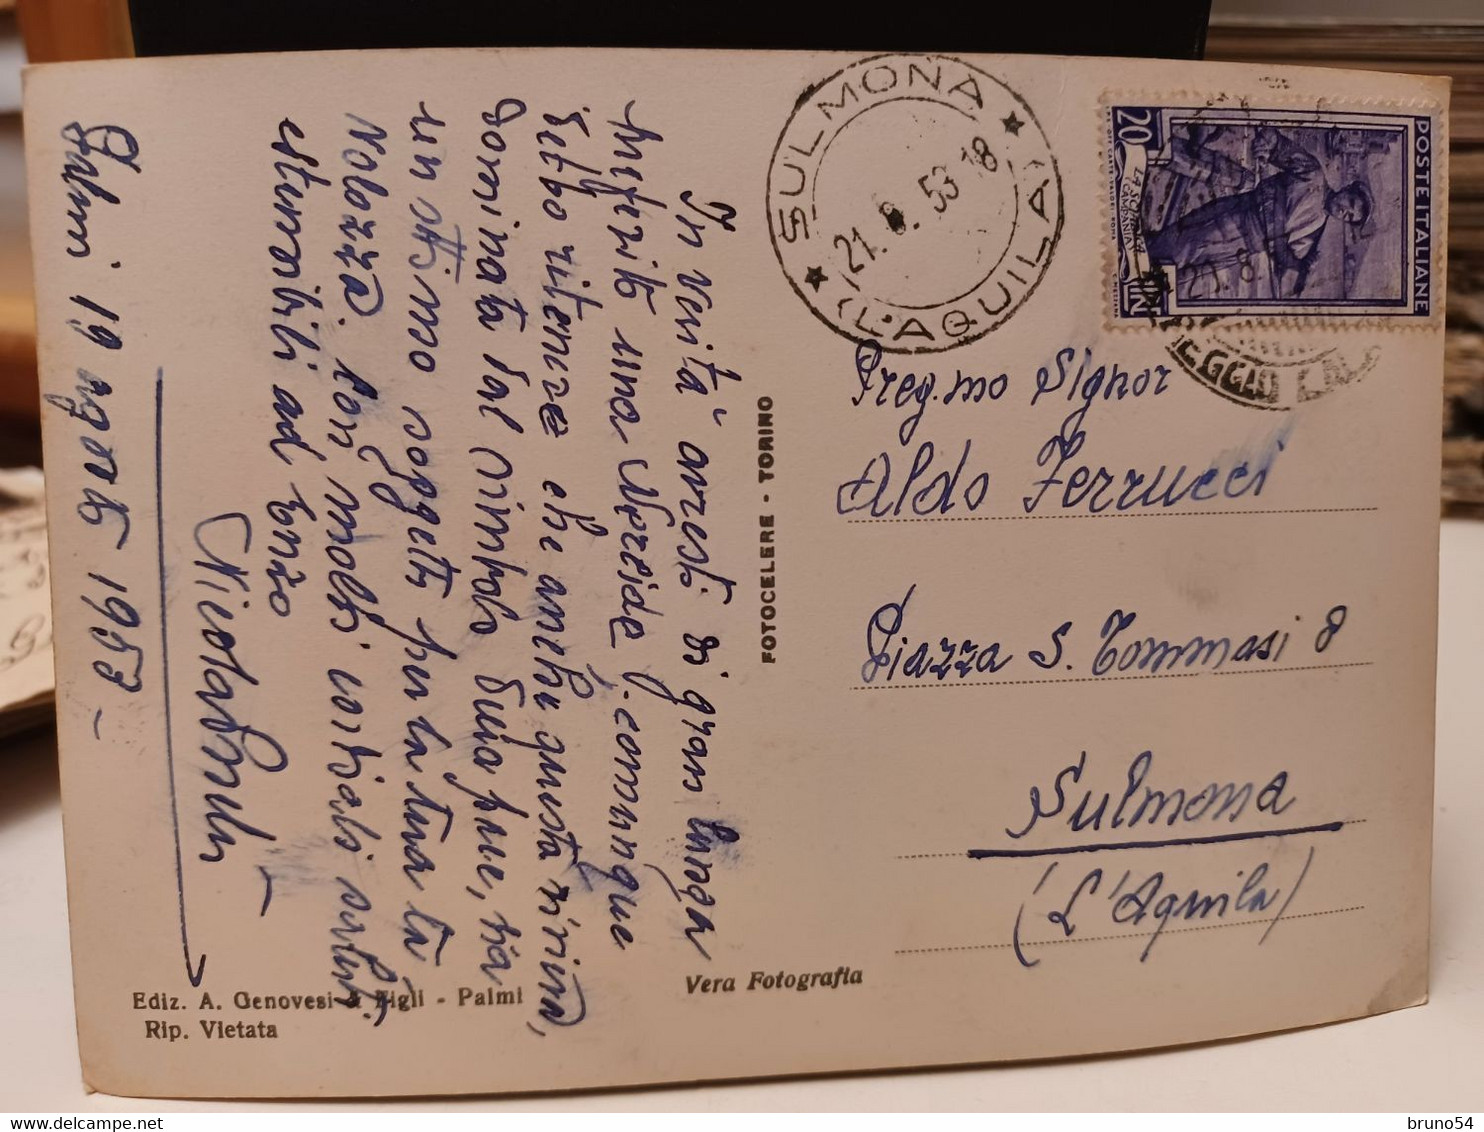 Palmi 19 agosto 1953 –
In verità avresti di gran lunga
preferito una Nereide, comunque
debbo ritenere che anche questa riviera,
dominata dal simbolo Suo pure, sia
un ottimo soggetto per la tua
Con molti cordiali saluti
estensibili ad Enzo
SULMONA
(L'AQUILA)
21. 8. 53 18
POSTE ITALIANE
20
CAMPANIA
21.8
REGGIO CAL
Preg.mo Signor
Aldo Ferrucci
Piazza S. Tommasi 8
Sulmona
(L'Aquila)
FOTOCELERE - TORINO
Vera Fotografia
Ediz. A. Genovesi & Figli - Palmi
Rip. Vietata
bruno54